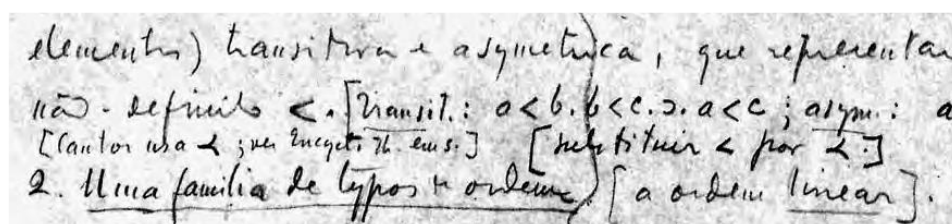 elementos) transitiva e asymetrica, que representar
não-definito <. [transit.: a<b.b<c.ɔ.a<c ; asym.: a
[Cantor usa ≺ ; ver Encycl. Th. ems.] [substituir < por ≺.]
2. Uma familia de typos de ordem) [a ordem linear].